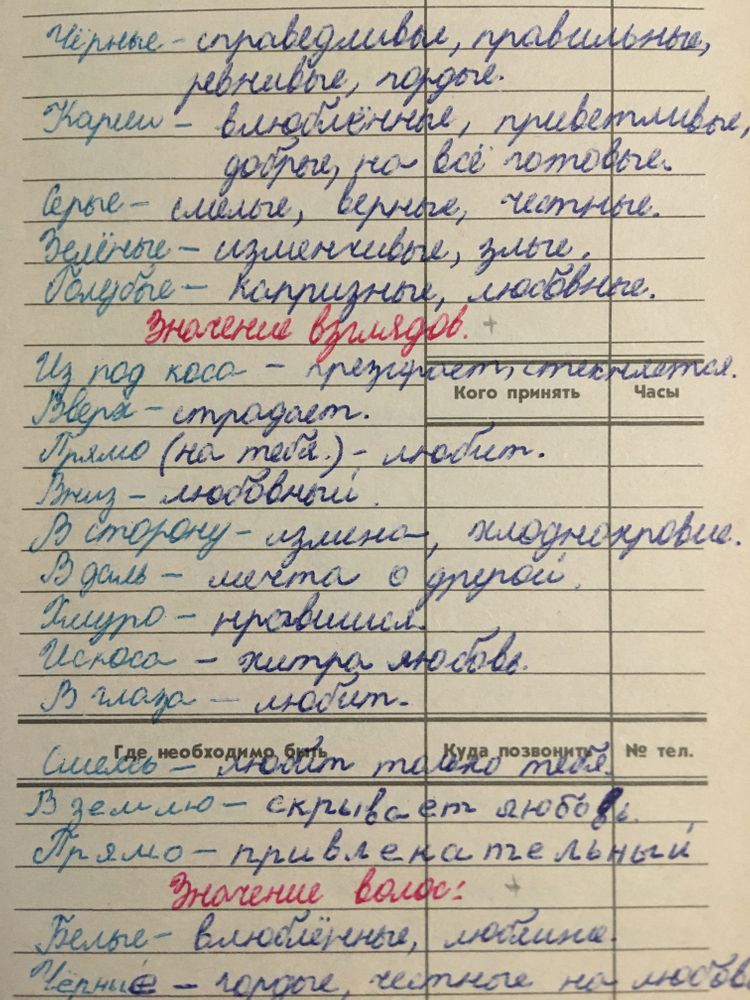 Чёрные – справедливые, правильные,
ревнивые, гордые.
Карии – влюблённые, приветливые,
добрые, на всё готовые.
Серые – смелые, верные, честные.
Зелёные – изменчивые, злые.
Голубые – капризные, любовные.
Значение взглядов. +
Из под коса – презирает, стекняется.
Кого принять Часы
Вверх – страдает.
Прямо (на тебя.) – любит.
Вниз – любовный.
В сторону – измена, хлоднокровие.
В даль – мечта о другой.
Хмуро – нравишися.
Искоса – хитра любовь.
В глаза – любит.
Где необходимо быть Куда позвонить № тел.
– любит только тебя.
В землю – скрывает любовь.
Прямо – привленательный
Значение волос: +
Белые – влюблённые,
Чёрние – гордые, честные на любов